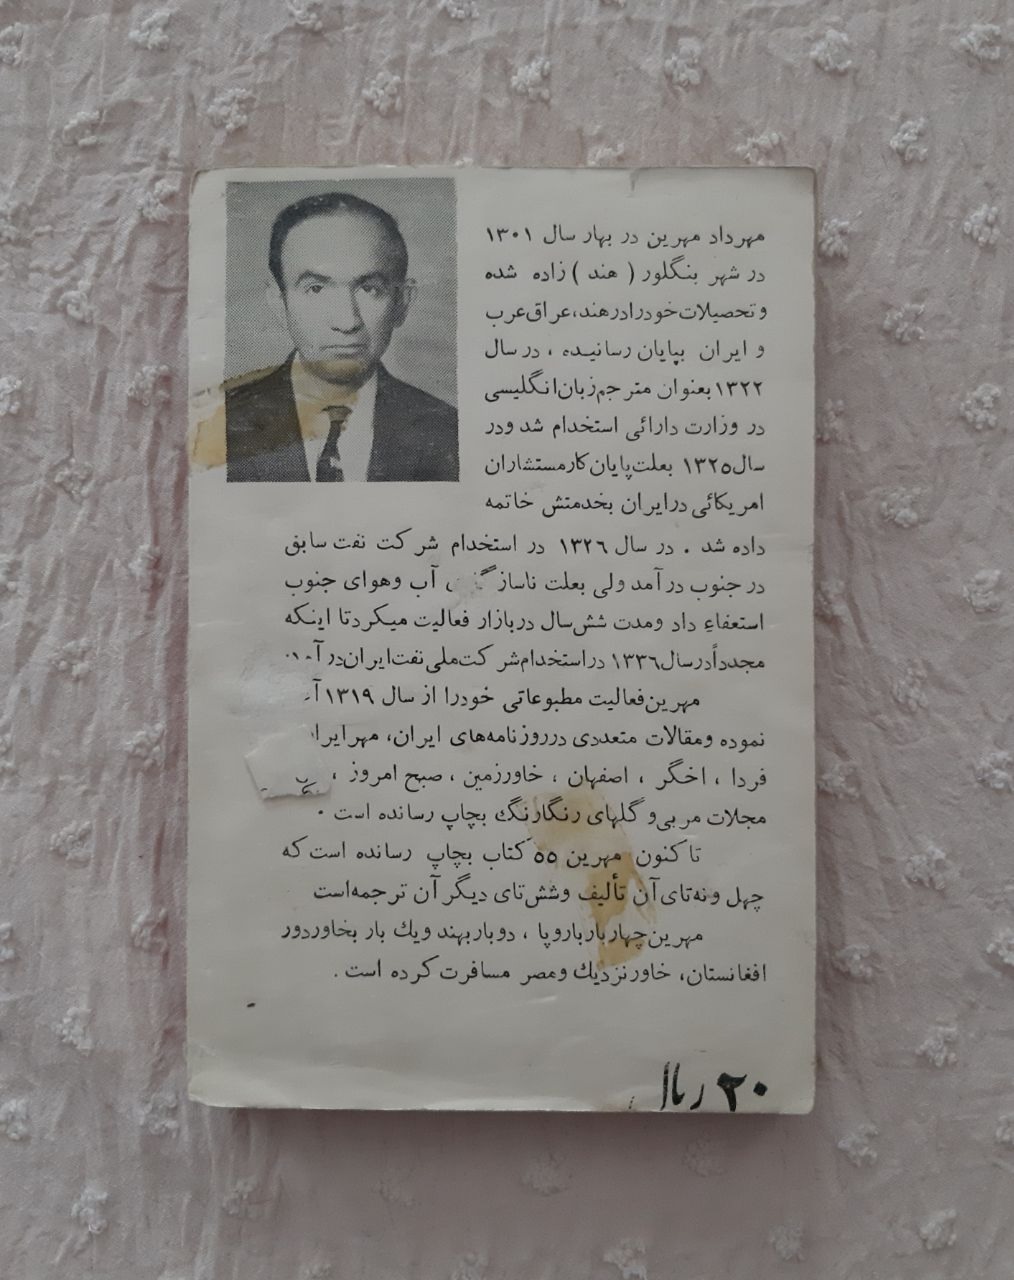 مهرداد مهرین در بهار سال ۱۳۰۱
در شهر بنگلور ( هند ) زاده شده
و تحصیلات خودرا در هند، عراق عرب
و ایران بپایان رسانیده ، در سال
۱۳۲۲ بعنوان مترجم زبان انگلیسی
در وزارت دارائی استخدام شد ودر
سال ۱۳۲۵ بعلت پایان کار مستشاران
امریکائی در ایران بخدمتش خاتمه
داده شد . در سال ۱۳۲۶ در استخدام شرکت نفت سابق
در جنوب درآمد ولی بعلت آب وهوای جنوب
استعفاء داد ومدت شش سال در بازار فعالیت میکرد تا اینکه
مجدداً در سال ۱۳۳۶ در استخدام شرکت ملی نفت ایران
مهرین فعالیت مطبوعاتی خودرا از سال ۱۳۱۹
نموده ومقالات متعددی در روزنامه‌های ایران، مهر
فردا ، اخگر ، اصفهان ، خاورزمین ، صبح امروز ،
مجلات مربی و گلهای رنگارنگ بچاپ رسانده است .
تاکنون مهرین ۵۵ کتاب بچاپ رسانده است که
چهل ونه‌تای آن تألیف وشش‌تای دیگر آن ترجمه‌است
مهرین چهار بار باروپا ، دوبار بهند ویك بار بخاوردور
افغانستان، خاورنزدیك ومصر مسافرت کرده است .
۲۰ ریال